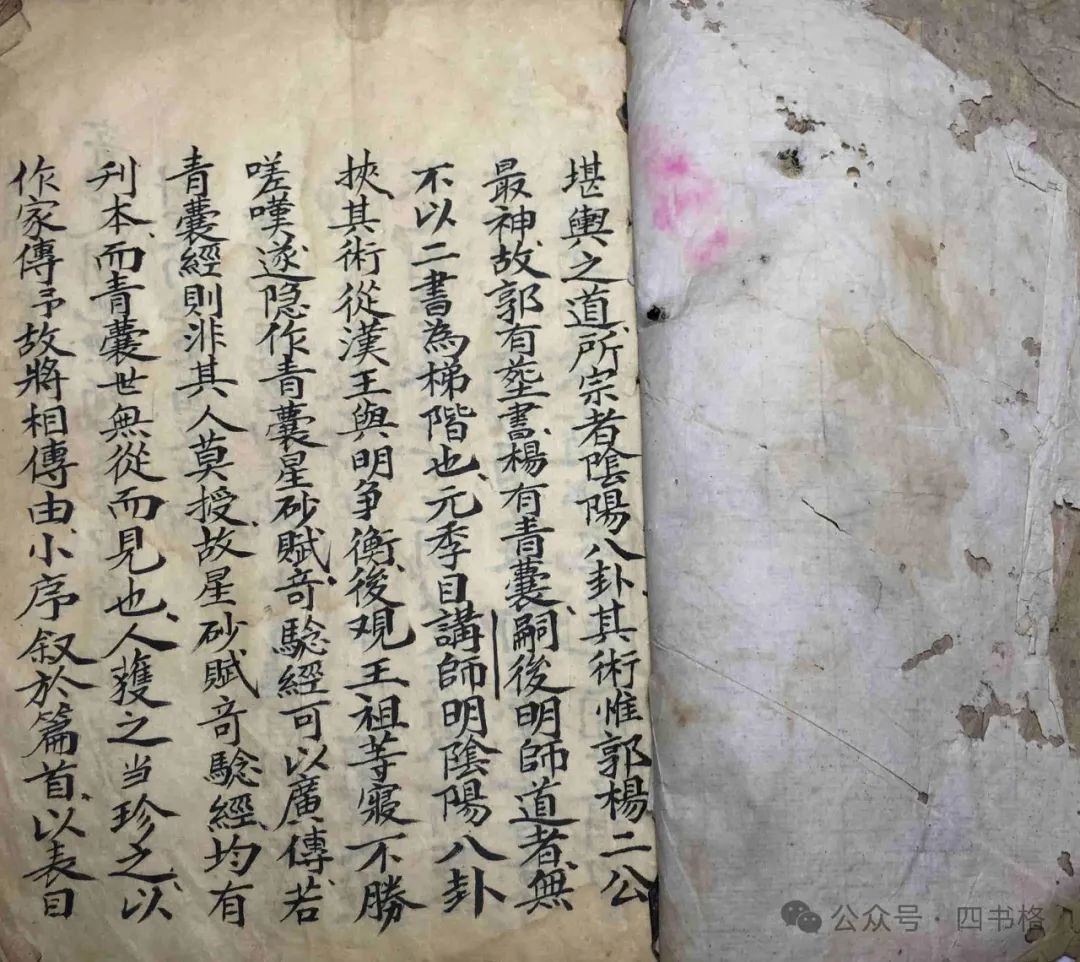 堪輿之道、所宗者陰陽八卦、其術惟郭楊二公
最神、故郭有塟書、楊有青囊、嗣後明師道者、無
不以二書為梯階也、元季目講師明陰陽八卦
挾其術從漢王與明爭衡、後观王祖等寢不勝
嗟嘆、遂隐作青囊星砂賦、竒騐經可以廣傳、若
青囊經則非其人莫授、故星砂賦竒騐經、均有
刋本、而青囊世無從而見也、人獲之当珍之、以
作家傳、予故將相傳由、小序叙於篇首、以表目
公众号·四书格